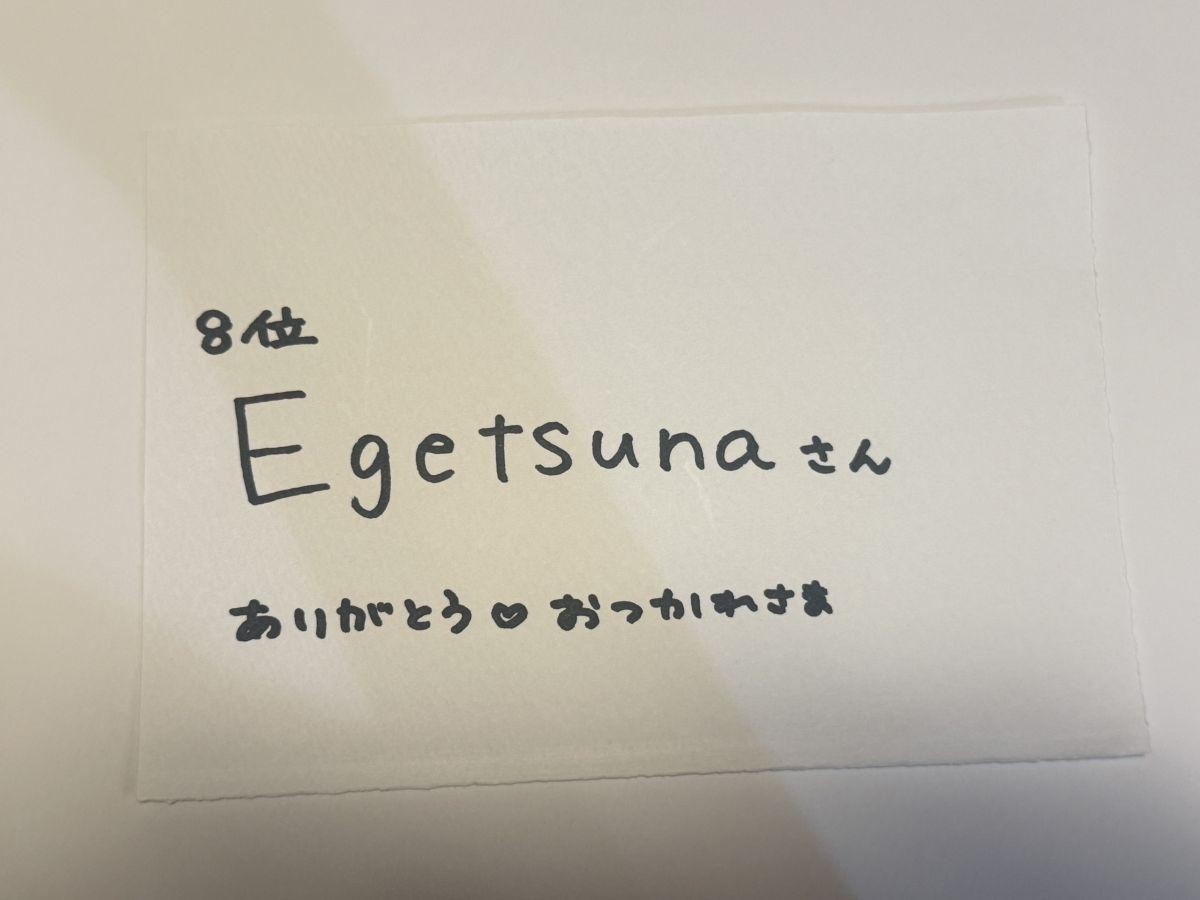 8位
Egetsunaさん
ありがとう♡おつかれさま